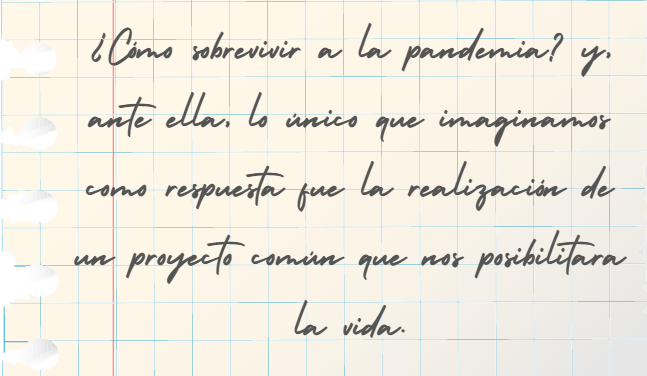 ¿Cómo sobrevivir a la pandemia? y,
ante ella, lo único que imaginamos
como respuesta fue la realización de
un proyecto común que nos posibilitara
la vida.